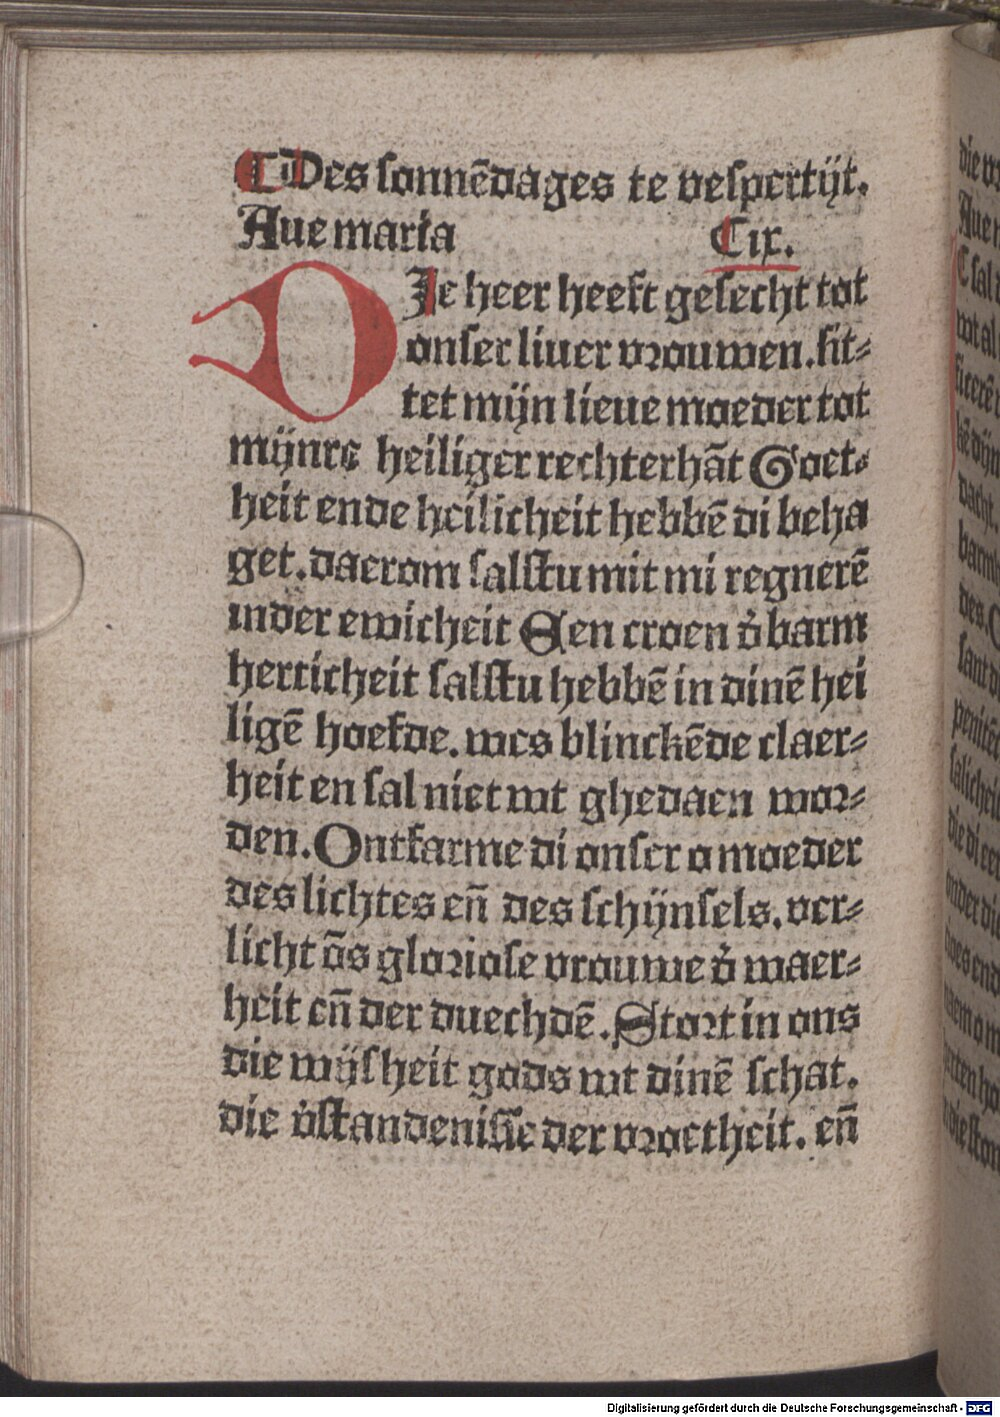 ¶ Des sonnēdages te vespertijt.
Aue maria Cix.
DIe heer heeft gesecht tot
onser liuer vrouwen. sit-
tet mijn lieue moeder tot
mijnre heiliger rechterhāt Goet-
heit ende heilicheit hebbē di beha
get. daerom salstu mit mi regnerē
inder ewicheit Een croen d̾ barm
herticheit salstu hebbē in dinē hei
ligē hoefde. wes blinckēde claer-
heit en sal niet wt ghedaen wor-
den. Ontfarme di onser o moeder
des lichtes en̄ des schijnsels. ver-
licht ōs gloriose vrouwe d̾ waer-
heit en̄ der duechdē. Stort in ons
die wijsheit gods wt dinē schat.
die v̾standenisse der vroetheit. en̄
Digitalisierung gefördert durch die Deutsche Forschungsgemeinschaft - DFG